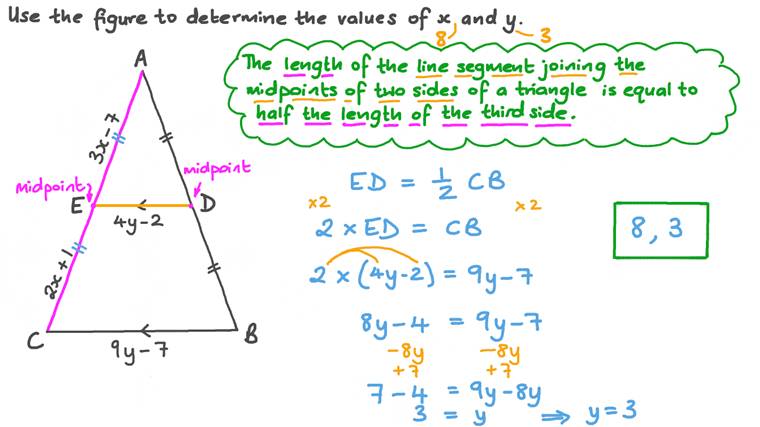 Use the figure to determine the values of x and y.
8 3
The length of the line segment joining the
midpoints of two sides of a triangle is equal to
half the length of the third side.
A
3x-7
midpoint midpoint
E D
4y-2
2x+1
C B
9y-7
ED = 1/2 CB
x2 x2
2 × ED = CB
2 × (4y-2) = 9y-7
8y-4 = 9y-7
-8y -8y
+7 +7
7-4 = 9y-8y
3 = y ⇒ y=3
8, 3